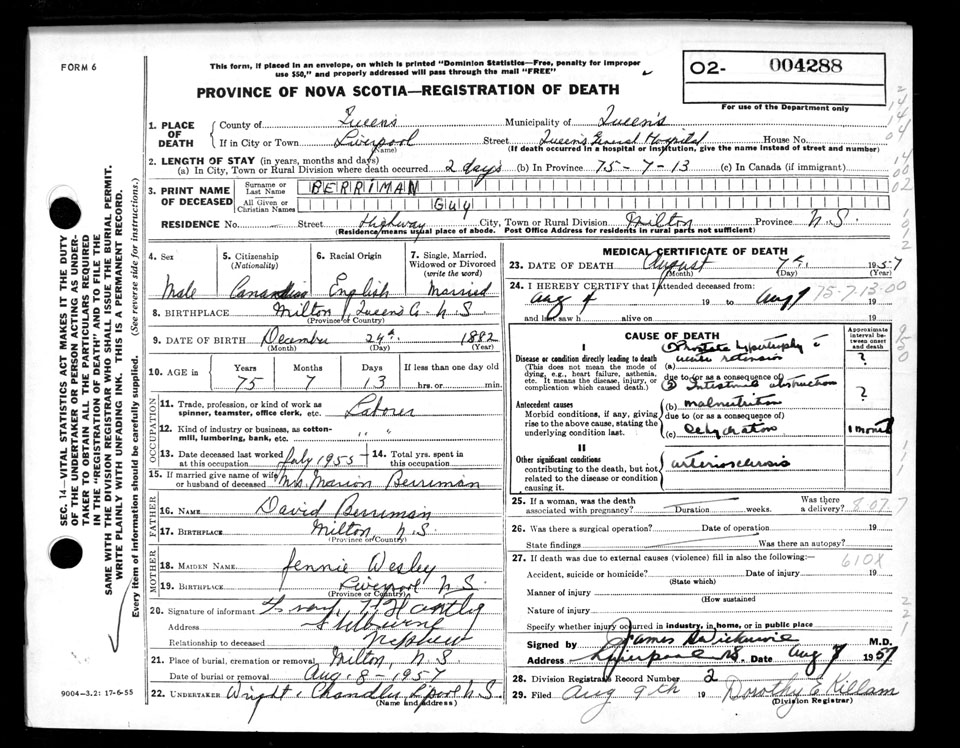 FORM 6
This form, if placed in an envelope, on which is printed "Dominion Statistics—Free, penalty for improper
use $50," and properly addressed will pass through the mail "FREE"
O2- 004288
For use of the Department only
PROVINCE OF NOVA SCOTIA—REGISTRATION OF DEATH
1. PLACE OF DEATH
County of Queens Municipality of Queens
If in City or Town Liverpool (Name) Street Queens General Hospital House No.
(If death occurred in a hospital or institution, give the name instead of street and number)
2. LENGTH OF STAY (in years, months and days)
(a) In City, Town or Rural Division where death occurred 2 days (b) In Province 75-7-13 (c) In Canada (if immigrant)
3. PRINT NAME OF DECEASED
Surname or Last Name BERRIMAN
All Given or Christian Names Guy
RESIDENCE No. Street Highway City, Town or Rural Division Milton Province N.S.
(Residence means usual place of abode. Post Office Address for residents in rural parts not sufficient)
4. Sex Male
5. Citizenship (Nationality) Canadian
6. Racial Origin English
7. Single, Married, Widowed or Divorced (write the word) Married
8. BIRTHPLACE Milton, Queens Co. N.S.
(Province or Country)
9. DATE OF BIRTH December 24th 1882
(Month) (Day) (Year)
10. AGE in Years 75 Months 7 Days 13 If less than one day old hrs. or min.
OCCUPATION
11. Trade, profession, or kind of work as spinner, teamster, office clerk, etc. Laborer
12. Kind of industry or business, as cotton-mill, lumbering, bank, etc. " "
13. Date deceased last worked at this occupation July 1955
14. Total yrs. spent in this occupation
15. If married give name of wife or husband of deceased Mrs Marion Berriman
FATHER
16. NAME David Berriman
17. BIRTHPLACE Milton N.S.
(Province or Country)
MOTHER
18. MAIDEN NAME Jennie Wesley
19. BIRTHPLACE Liverpool N.S.
(Province or Country)
20. Signature of informant
Address Shelburne
Relationship to deceased Nephew
21. Place of burial, cremation or removal Milton, N.S.
Date of burial, cremation or removal Aug. 8 - 1957
22. UNDERTAKER Wright Chandler L'pool N.S.
(Name and address)
MEDICAL CERTIFICATE OF DEATH
23. DATE OF DEATH August 7th 1957
(Month) (Day) (Year)
24. I HEREBY CERTIFY that I attended deceased from:
Aug 4 19 to Aug 7 19
75-7-13-00
and last saw h alive on 19
CAUSE OF DEATH
Approximate interval between onset and death
I
Disease or condition directly leading to death
(This does not mean the mode of dying, e.g., heart failure, asthenia, etc. It means the disease, injury, or complication which caused death.)
(a) Prostate hypertrophy c acute retention ?
due to (or as a consequence of)
Intestinal obstruction
Antecedent causes
Morbid conditions, if any, giving rise to the above cause, stating the underlying condition last.
(b) malnutrition ?
due to (or as a consequence of)
(c) dehydration 1 month
II
Other significant conditions
contributing to the death, but not related to the disease or condition causing it.
arteriosclerosis
25. If a woman, was the death associated with pregnancy? Duration weeks. Was there a delivery?
26. Was there a surgical operation? Date of operation 19
State findings Was there an autopsy?
27. If death was due to external causes (violence) fill in also the following: 610X
Accident, suicide or homicide? Date of injury 19
(State which)
Manner of injury
(How sustained
Nature of injury
Specify whether injury occurred in industry, in home, or in public place
Signed by James M.D.
Address Liverpool NS. Date Aug 7 1957
28. Division Registrar's Record Number 2
29. Filed Aug 9th 19 Dorothy E Killam
(Division Registrar)
SEC. 14—VITAL STATISTICS ACT MAKES IT THE DUTY
OF THE UNDERTAKER OR PERSON ACTING AS UNDER-
TAKER TO OBTAIN ALL THE PARTICULARS REQUIRED
IN THE "REGISTRATION OF DEATH" AND TO FILE THE
SAME WITH THE DIVISION REGISTRAR WHO SHALL ISSUE THE BURIAL PERMIT.
WRITE PLAINLY WITH UNFADING INK. THIS IS A PERMANENT RECORD.
Every item of information should be carefully supplied. (See reverse side for instructions.)
9004-3.2: 17-6-55